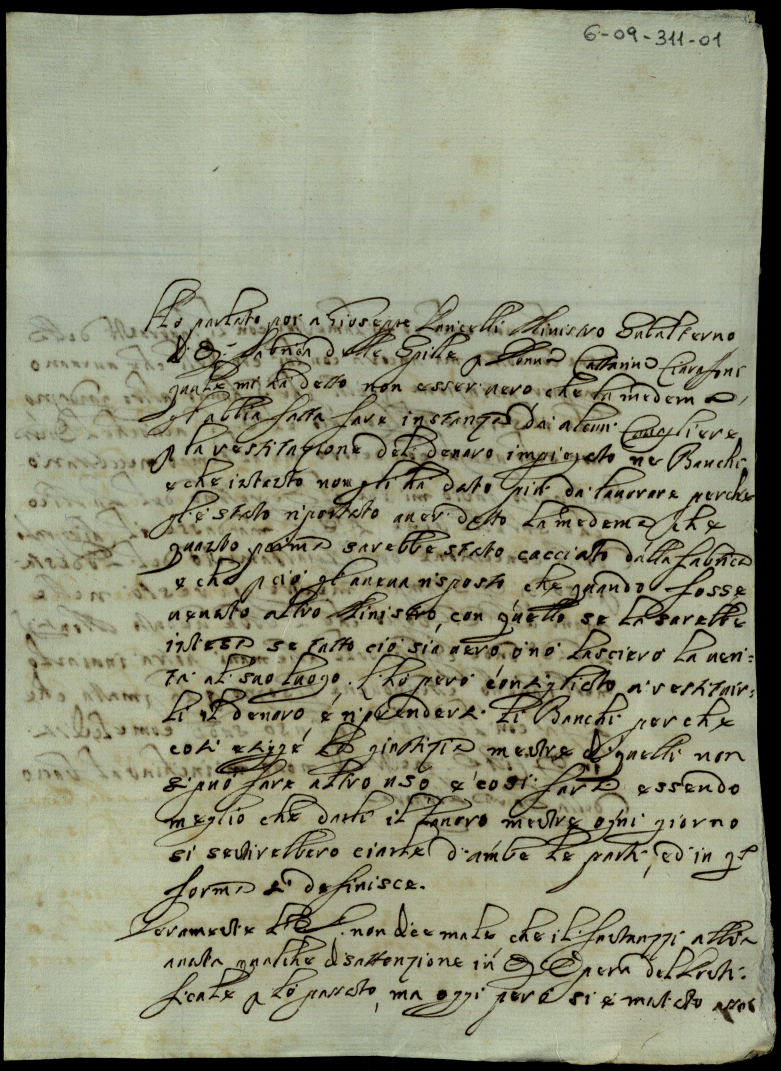 6-09-311-01
Ho parlato poi a Giuseppe Lancelli Ministro Subalterno
di Fabrica delle Spille p Donna Cattarina
quale mi ha detto non esser vero che la medema
gl'abbia fatta fare instanza da alcun Consigliere
p la restitazione del denaro impiegato ne' Banchi
e che intanto non gli ha dato più da lavorare perche
gl'è stato riportato aver detto la medema che
quanto prima sarebbe stato cacciato dalla fabrica
e che p ciò gl'aveva risposto che quando fosse
venuto altro Ministro, con quello se la sarebbe
intesa se tutto ciò sia vero, o nò lascierò la veri-
tà al suo luogo. Hò però consigliato a restituir-
li il denaro e riprendersi li Banchi perche
così esigge la giustizia mentre di quelli non
si può fare altro uso e così farà essendo
meglio che darli il lavoro mentre ogni giorno
si sentirebbero ciarle d'ambe le parti, ed in qta
forma si definisce.
Veramente non dice male, che il abbia
avuta qualche disattenzione in Opera del
ficale p lo passato, ma oggi però si è mutato assai